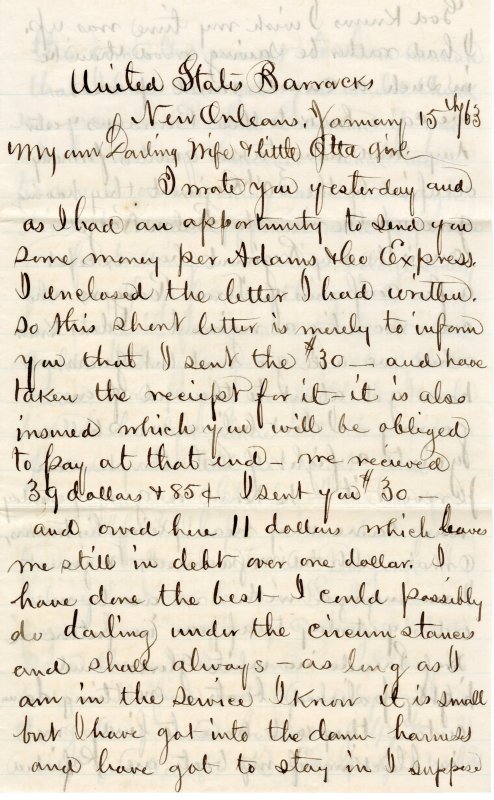 United States Barracks
New Orleans, January 15th/63
My own Darling Wife & little Otta girl.
I wrote you yesterday and
as I had an opportunity to send you
some money per Adams & Co Express.
I enclosed the letter I had written.
so this short letter is merely to inform
you that I sent the $30 — and have
taken the reciept for it – it is also
insured which you will be obliged
to pay at that end – we recieved
39 dollars & 85¢ I sent you $30 —
and owed here 11 dollars which leaves
me still in debt over one dollar. I
have done the best I could possibly
do darling under the circumstances
and shall always – as long as I
am in the service I know it is small
but I have got into the damn harness
and have got to stay in I suppose